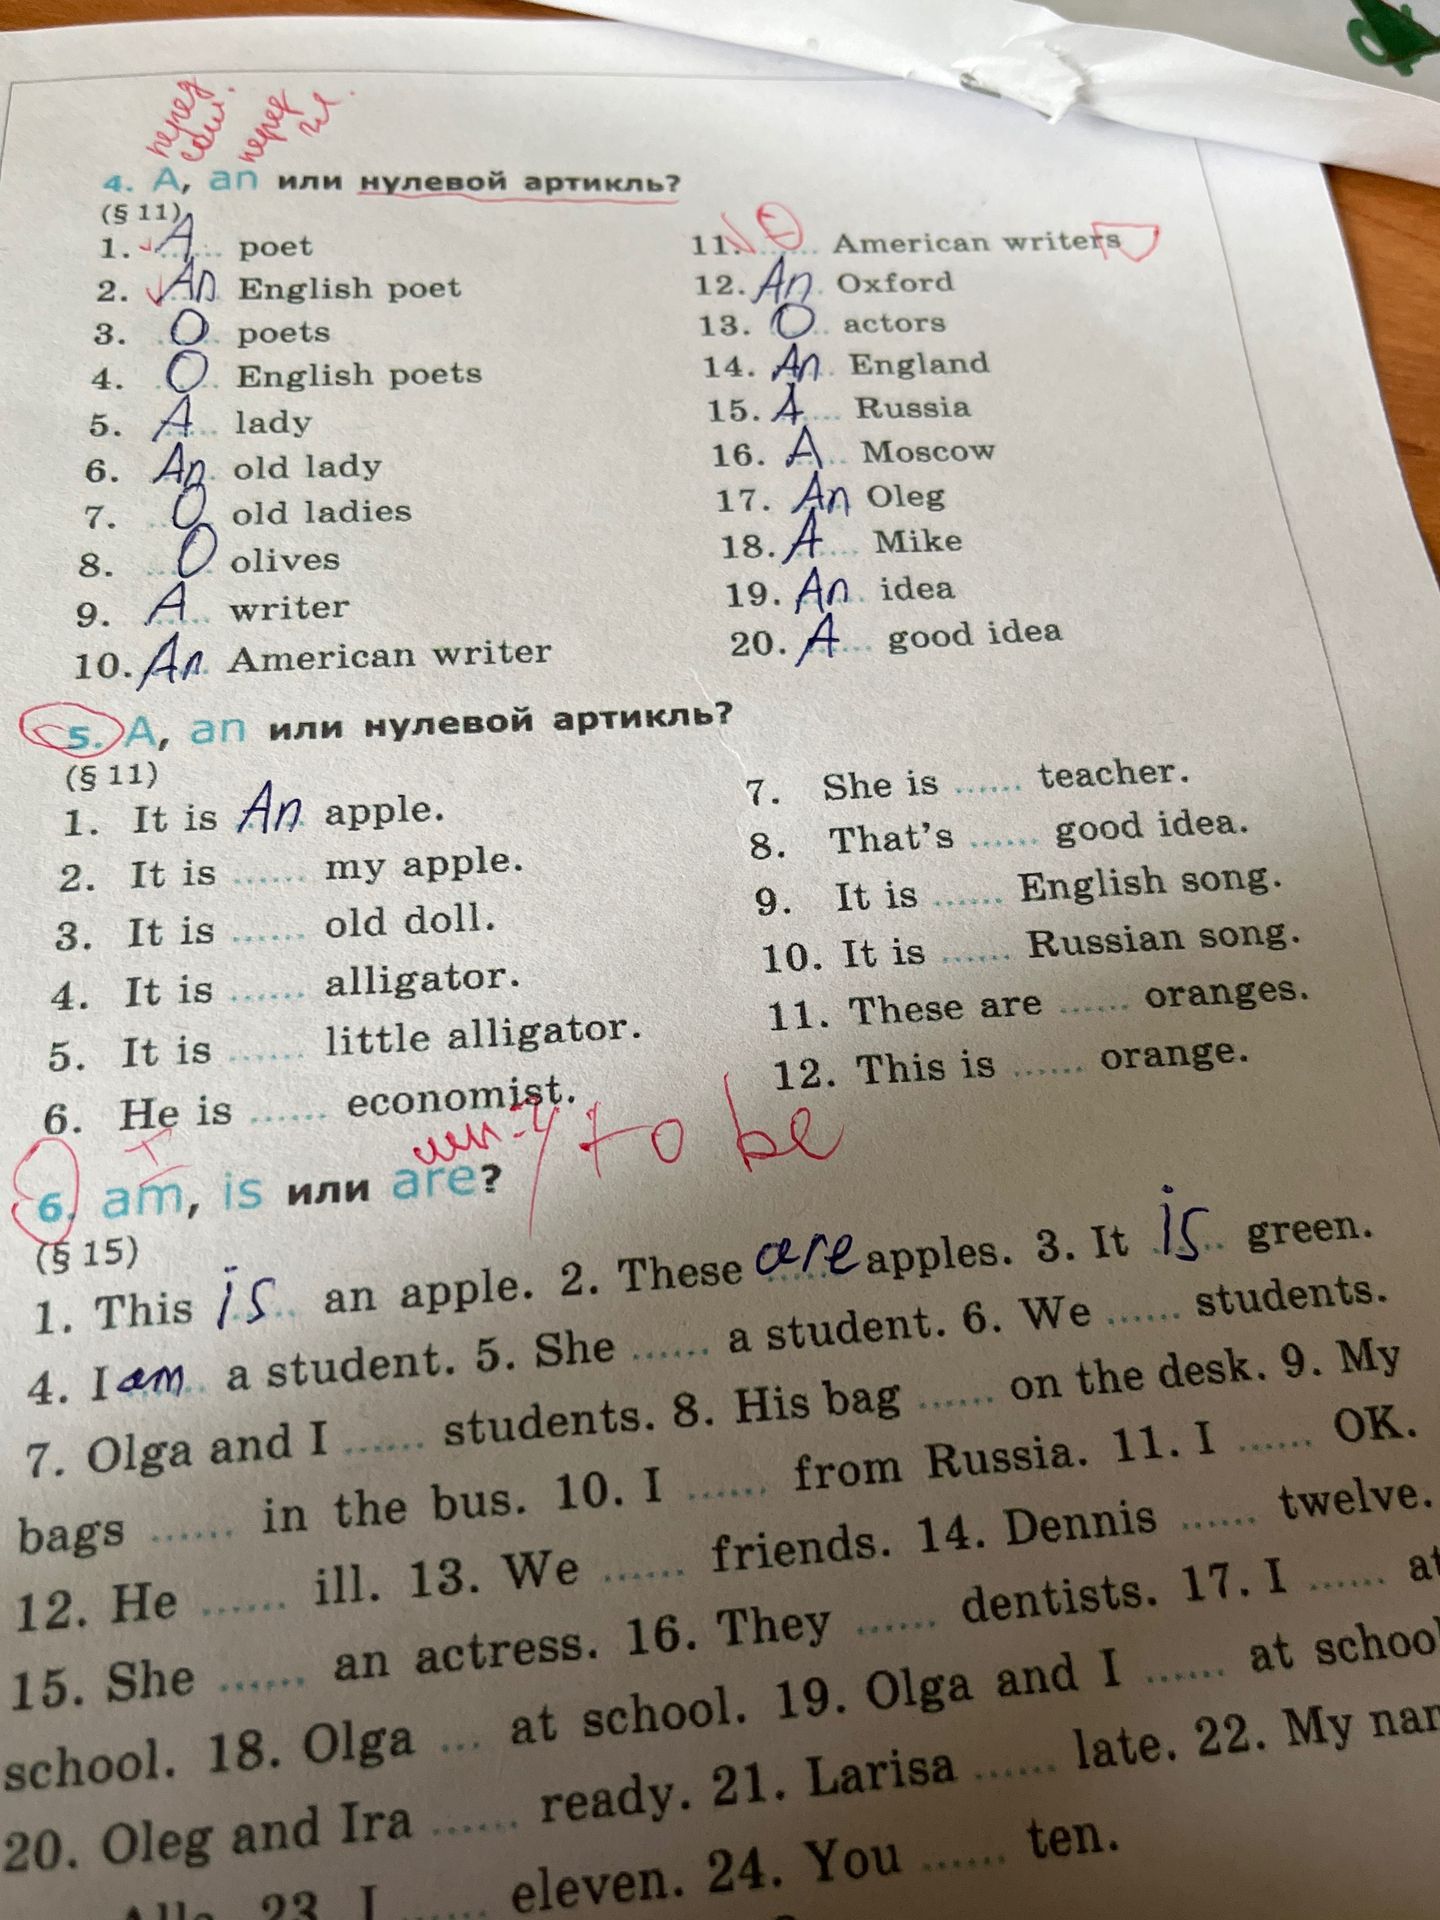 перед перед
сог. гл.
4. A, an или нулевой артикль?
(§ 11)
1. A poet
2. An English poet
3. O poets
4. O English poets
5. A lady
6. An old lady
7. O old ladies
8. O olives
9. A writer
10. An American writer
11. ...... American writers
12. An Oxford
13. O actors
14. An England
15. A Russia
16. A Moscow
17. An Oleg
18. A Mike
19. An idea
20. A good idea
5. A, an или нулевой артикль?
(§ 11)
1. It is An apple.
2. It is ...... my apple.
3. It is ...... old doll.
4. It is ...... alligator.
5. It is ...... little alligator.
6. He is ...... economist.
7. She is ...... teacher.
8. That's ...... good idea.
9. It is ...... English song.
10. It is ...... Russian song.
11. These are ...... oranges.
12. This is ...... orange.
I мн.ч / to be
6. am, is или are?
(§ 15)
1. This is an apple. 2. These are apples. 3. It is green.
4. I am a student. 5. She ...... a student. 6. We ...... students.
7. Olga and I ...... students. 8. His bag ...... on the desk. 9. My
bags ...... in the bus. 10. I ...... from Russia. 11. I ...... OK.
12. He ...... ill. 13. We ...... friends. 14. Dennis ...... twelve.
15. She ...... an actress. 16. They ...... dentists. 17. I ...... at
school. 18. Olga ... at school. 19. Olga and I ...... at school
20. Oleg and Ira ...... ready. 21. Larisa ...... late. 22. My
23. I ...... eleven. 24. You ...... ten.